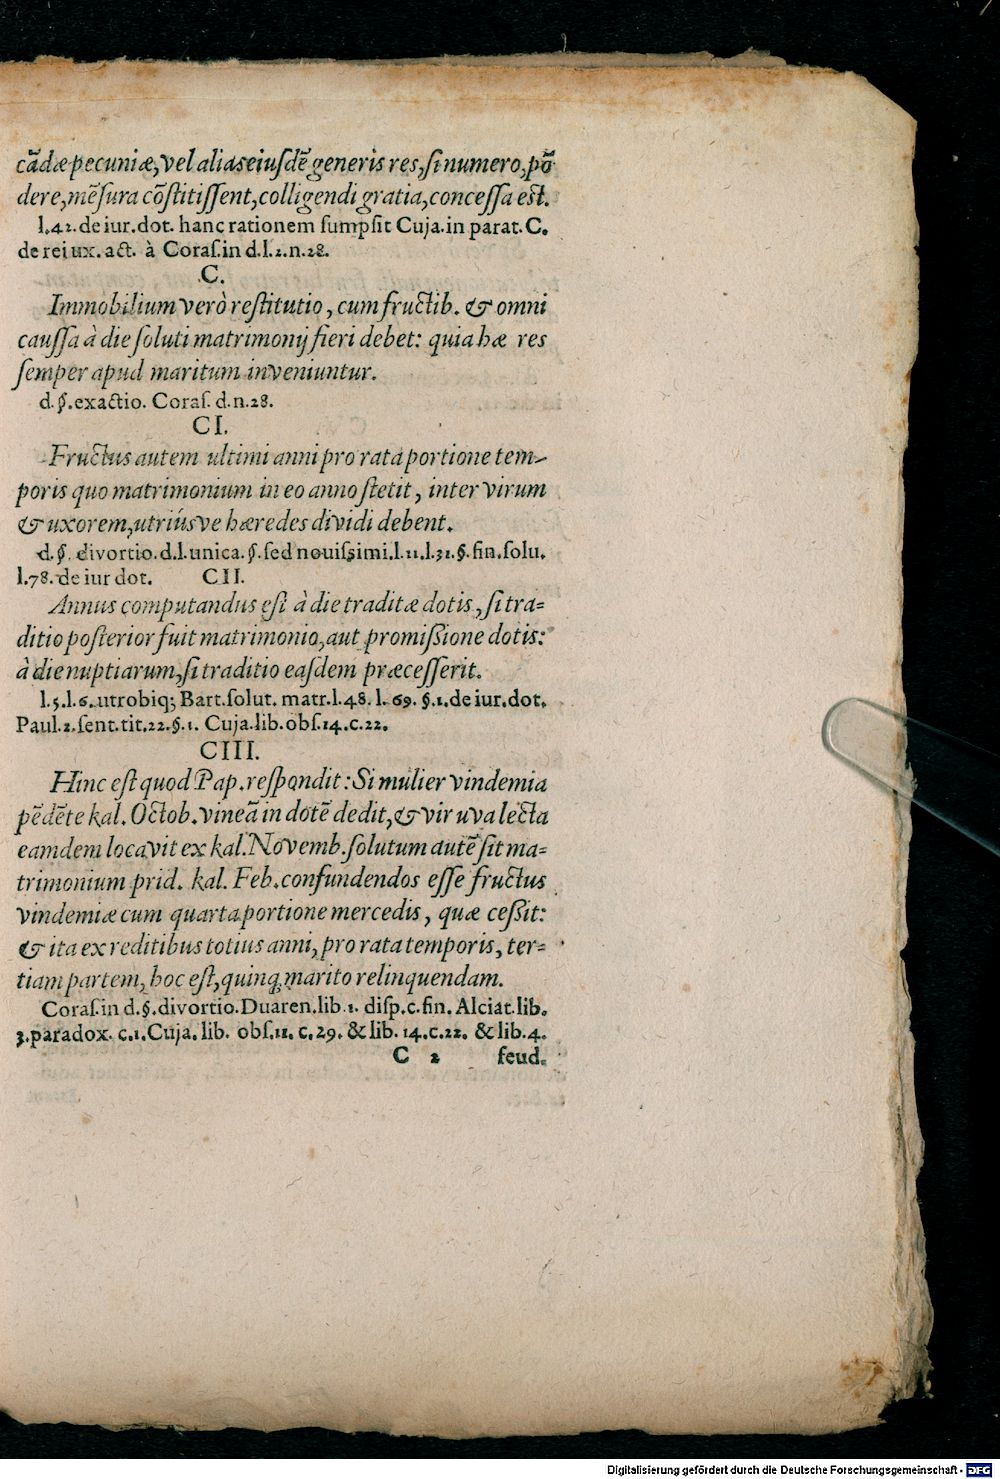 cādæ pecuniæ, vel alias eiuſdē generis res, ſi numero, pō
dere, mēſura cōſtitiſſent, colligendi gratia, conceſſa est.
l.42. de iur. dot. hanc rationem ſumpſit Cuja. in parat. C.
de rei ux. act. à Coraſ. in d.l.2.n.28.
C.
Immobilium verò reſtitutio, cum fructib. & omni
cauſſa à die ſoluti matrimonij fieri debet: quia hæ res
ſemper apud maritum inveniuntur.
d.§. exactio. Coraſ. d.n.28.
CI.
Fructus autem ultimi anni pro rata portione tem-
poris quo matrimonium in eo anno ſtetit, inter virum
& uxorem, utriúsve hæredes dividi debent.
d.§. divortio. d.l. unica. §. ſed nouiſsimi. l.11.l.31.§. fin. ſolu.
l.78. de iur dot. CII.
Annus computandus eſt à die traditæ dotis, ſi tra=
ditio poſterior fuit matrimonio, aut promiſsione dotis:
à die nuptiarum, ſi traditio eaſdem præceſſerit.
l.5.l.6. utrobiq; Bart. ſolut. matr. l.48. l.69. §.1. de iur. dot.
Paul. 2. ſent. tit. 22. §.1. Cuja. lib. obſ. 14. c.22.
CIII.
Hinc eſt quod Pap. reſpondit: Si mulier vindemia
pēdēte kal. Octob. vineā in dotē dedit, & vir uva lecta
eamdem locavit ex kal. Novemb. ſolutum autē ſit ma=
trimonium prid. kal. Feb. confundendos eſſe fructus
vindemiæ cum quarta portione mercedis, quæ ceſsit:
& ita ex reditibus totius anni, pro rata temporis, ter=
tiam partem, hoc eſt, quinq; marito relinquendam.
Coraſ. in d.§. divortio. Duaren. lib. 1. diſp. c. fin. Alciat. lib.
3. paradox. c.1. Cuja. lib. obſ. 11. c.29. & lib. 14. c.22. & lib. 4.
C 2 feud.
Digitalisierung gefördert durch die Deutsche Forschungsgemeinschaft - DFG